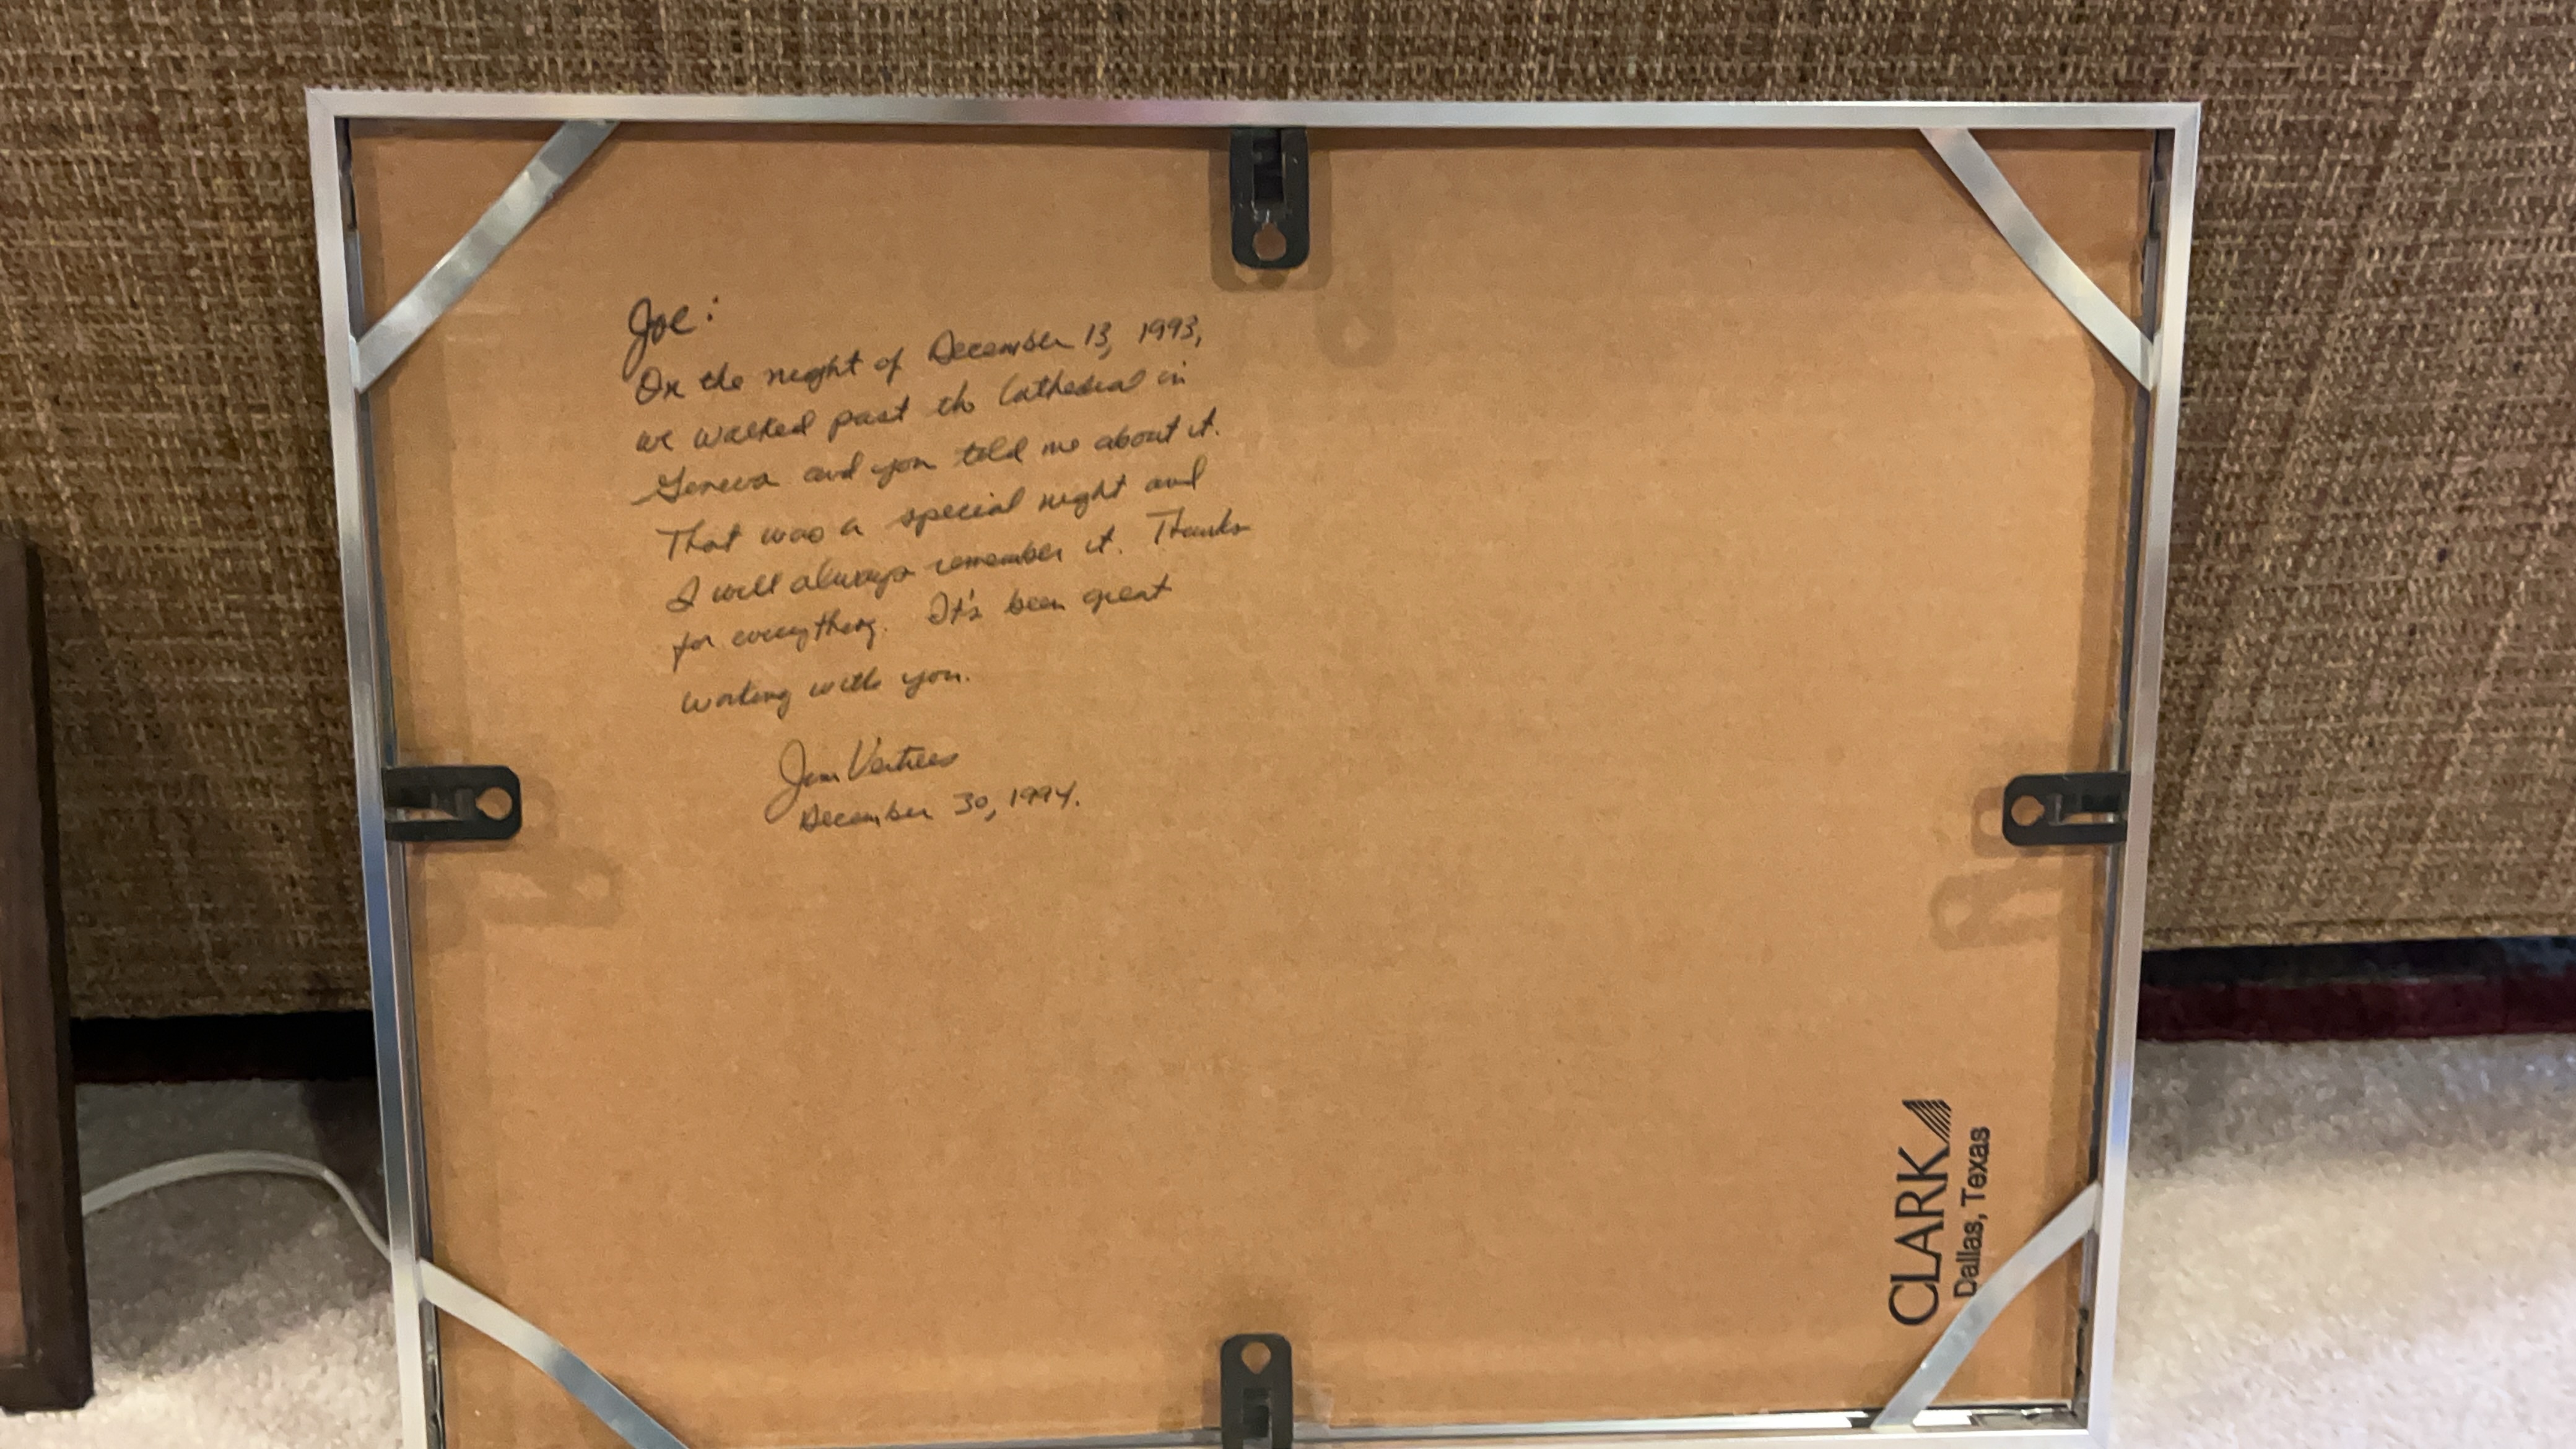 Joe:
On the night of December 13, 1993,
we walked past the Cathedral in
Geneva and you told me about it.
That was a special night and
I will always remember it. Thanks
for everything. It's been great
working with you.
Jim Vertrees
December 30, 1994.
CLARK
Dallas, Texas